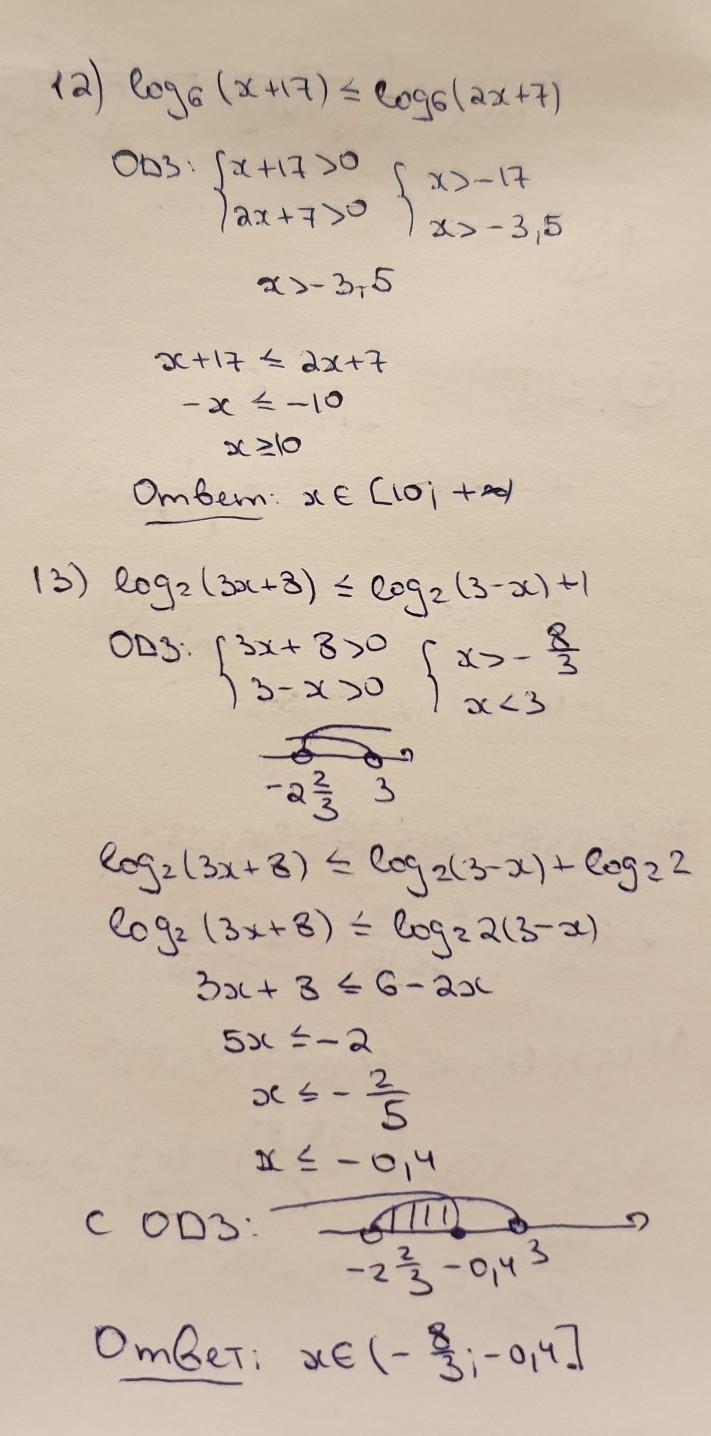 12) log₆(x+17) ≤ log₆(2x+7)
ОДЗ: { x+17>0 { x>-17
{ 2x+7>0 { x>-3,5
x>-3,5
x+17 ≤ 2x+7
-x ≤ -10
x ≥ 10
Ответ: x ∈ [10; +∞)
13) log₂(3x+8) ≤ log₂(3-x)+1
ОДЗ: { 3x+8>0 { x>-8/3
{ 3-x>0 { x<3
-2 2/3 3
log₂(3x+8) ≤ log₂(3-x)+log₂2
log₂(3x+8) ≤ log₂2(3-x)
3x+8 ≤ 6-2x
5x ≤ -2
x ≤ -2/5
x ≤ -0,4
С ОДЗ:
-2 2/3 -0,4 3
Ответ: x ∈ (-8/3; -0,4]